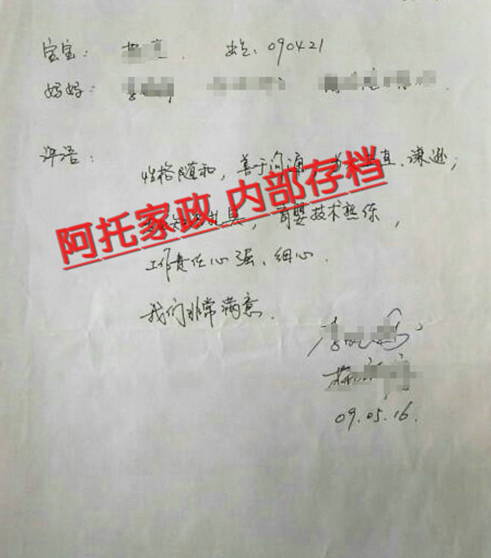 宝宝： 出生：090421
妈妈：
评语：
性格随和，善于沟通，正直、谦逊；
育婴技术熟练，
阿托家政 内部存档
工作责任心强、细心.
我们非常满意.
09.05.16.